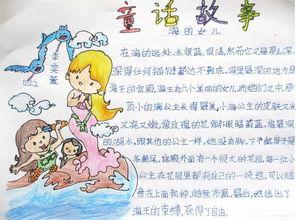 童话故事
海的女儿
在海的远处,水很蓝,很清,然而它又是那么深,
深得任何锚链都达不到底。海里最深的地方是
海王的宫殿,海王有六个美丽的女儿,而她们之中,那
顶小的海公主长得最美,小海公主的皮肤又光
又嫩,像玫瑰的花瓣,眼睛蔚蓝,像最深
的湖水,跟其他的公主一样,她没有脚,下半截身子是
条鱼尾。宫殿外面有一个很大的花园,每一位小
公主在花园里都有自己的一块地,可以随
意在上面栽种,随意布置。最后,她逃出了
海王的束缚,获得了自由。
四2
李奕萱